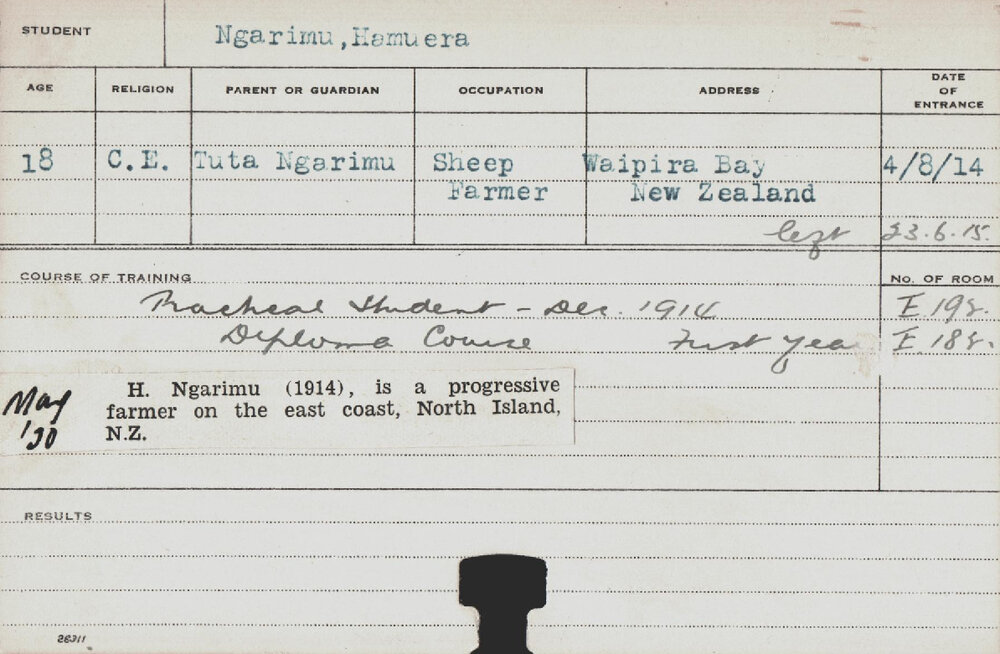 STUDENT
Ngarimu,Hamuera
AGE
RELIGION
PARENT OR GUARDIAN
OCCUPATION
ADDRESS
DATE
OF
ENTRANCE
18 C.E. Tuta Ngarimu Sheep Waipira Bay 4/8/14
Farmer New Zealand
left 23.6.15.
COURSE OF TRAINING
No. OF ROOM
Practical Student - Dec. 1914 E 19
Diploma Course First Year E 18
May
'30
H. Ngarimu (1914), is a progressive
farmer on the east coast, North Island,
N.Z.
RESULTS